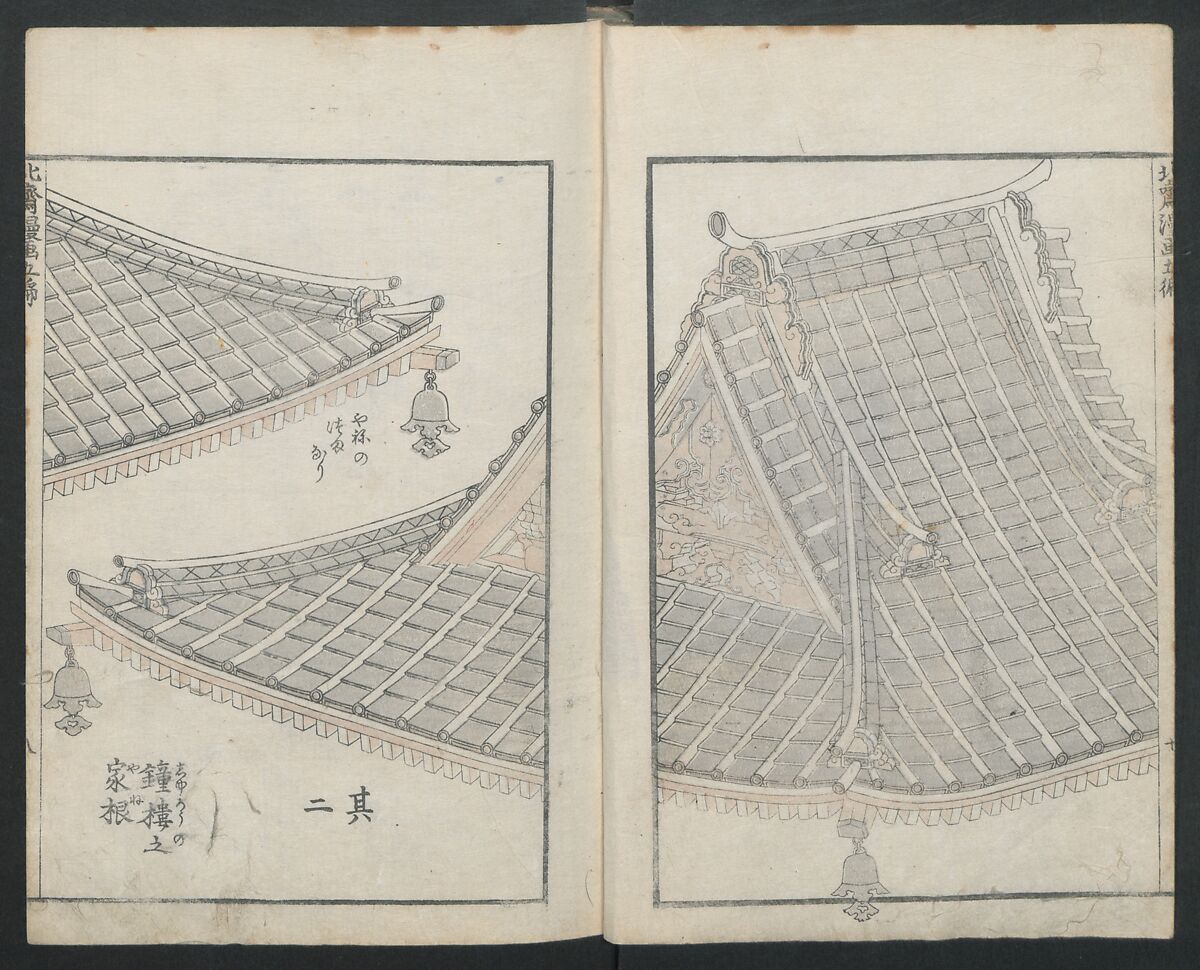 北齋漫画五編
七
其二
しゆろうの
鐘樓之
やね
家根
やねの
なり
北齋漫画五編
八